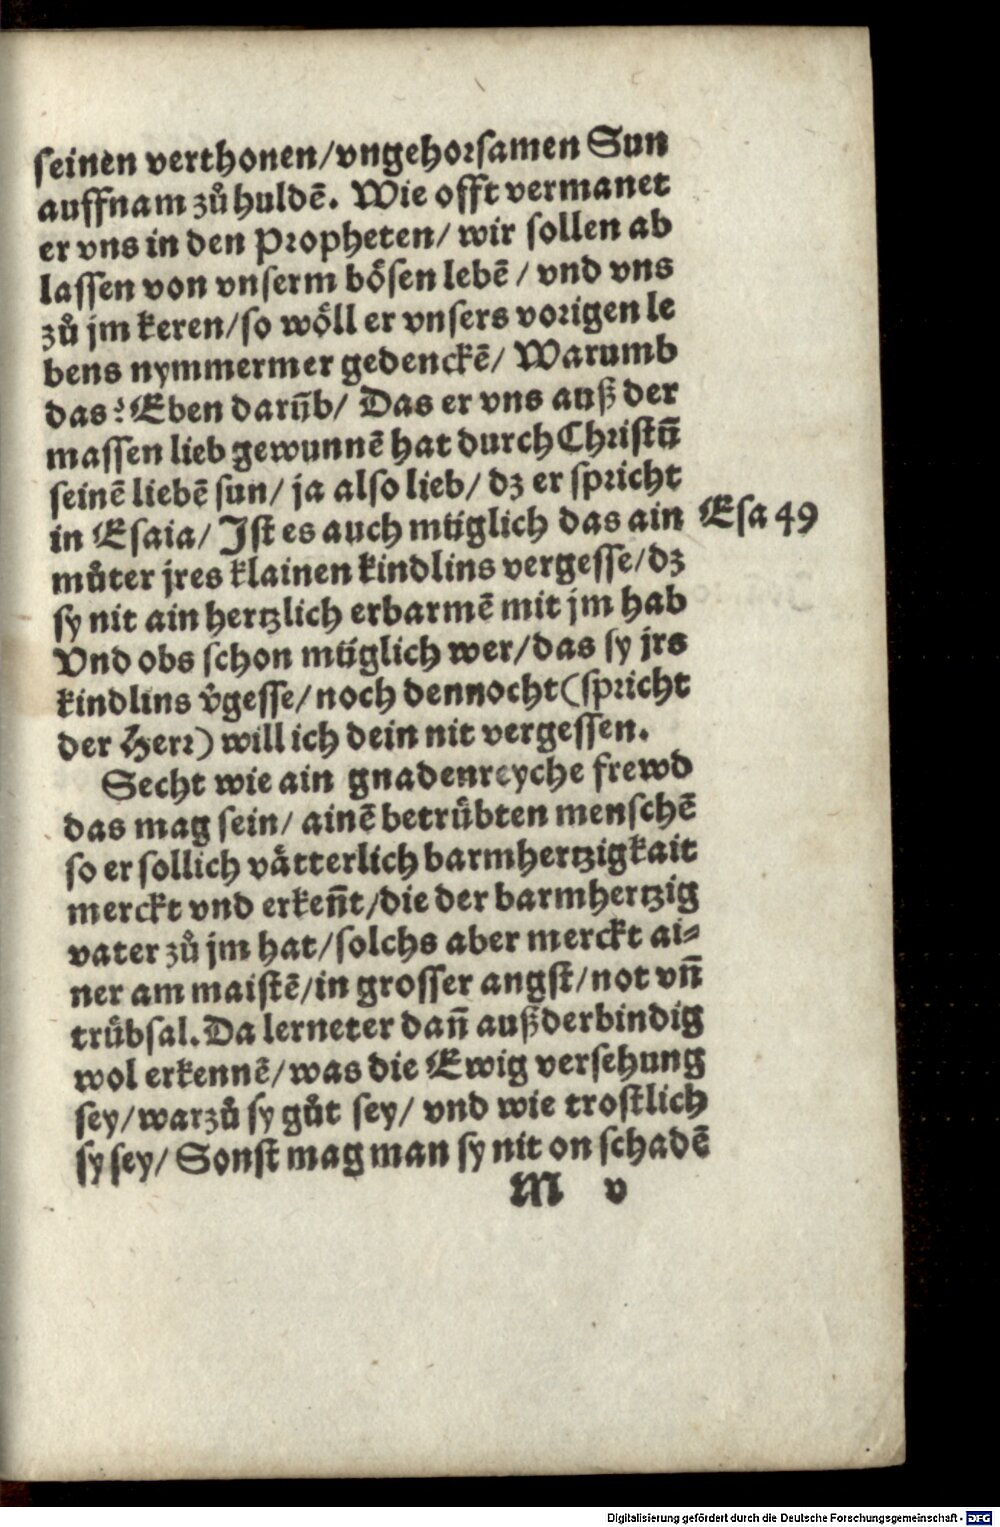 seinen verthonen/vngehorsamen Sun
auffnam zuͦ huldē. Wie offt vermanet
er vns in den Propheten/ wir sollen ab
lassen von vnserm boͤsen lebē / vnd vns
zuͦ jm keren/so woͤll er vnsers vorigen le
bens nymmermer gedenckē/ Warumb
das? Eben darūb/ Das er vns auß der
massen lieb gewunnē hat durch Christū
seinē liebē sun/ ja also lieb/ dz er spricht
in Esaia/ Ist es auch muͤglich das ain Esa 49
muͦter jres klainen kindlins vergesse/dz
sy nit ain hertzlich erbarmē mit jm hab
Vnd obs schon muͤglich wer/das sy jrs
kindlins v̄gesse/noch dennocht(spricht
der Herr) will ich dein nit vergessen.
Secht wie ain gnadenreyche frewd
das mag sein/ ainē betruͤbten menschē
so er sollich vaͤtterlich barmhertzigkait
merckt vnd erkeñt/die der barmhertzig
vater zuͦ jm hat/solchs aber merckt ai⸗
ner am maistē/in grosser angst/not vñ
truͤbsal. Da lerneter dañ außderbindig
wol erkennē/was die Ewig versehung
sey/warzuͦ sy guͦt sey/ vnd wie trostlich
sy sey/ Sonst mag man sy nit on schadē
M v
Digitalisierung gefördert durch die Deutsche Forschungsgemeinschaft - DFG